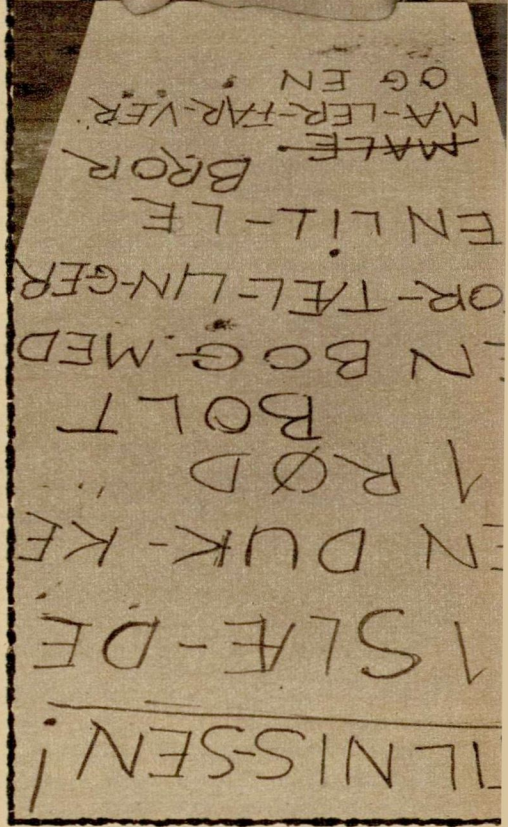 TIL NIS-SEN!
1 SLÆ-DE
EN DUK-KE
1 RØD
BOLT
EN BOG-MED
OR-TÆL-LIN-GER
EN LIL-LE
BROR
MALE
MA-LER-FAR-VER
OG EN